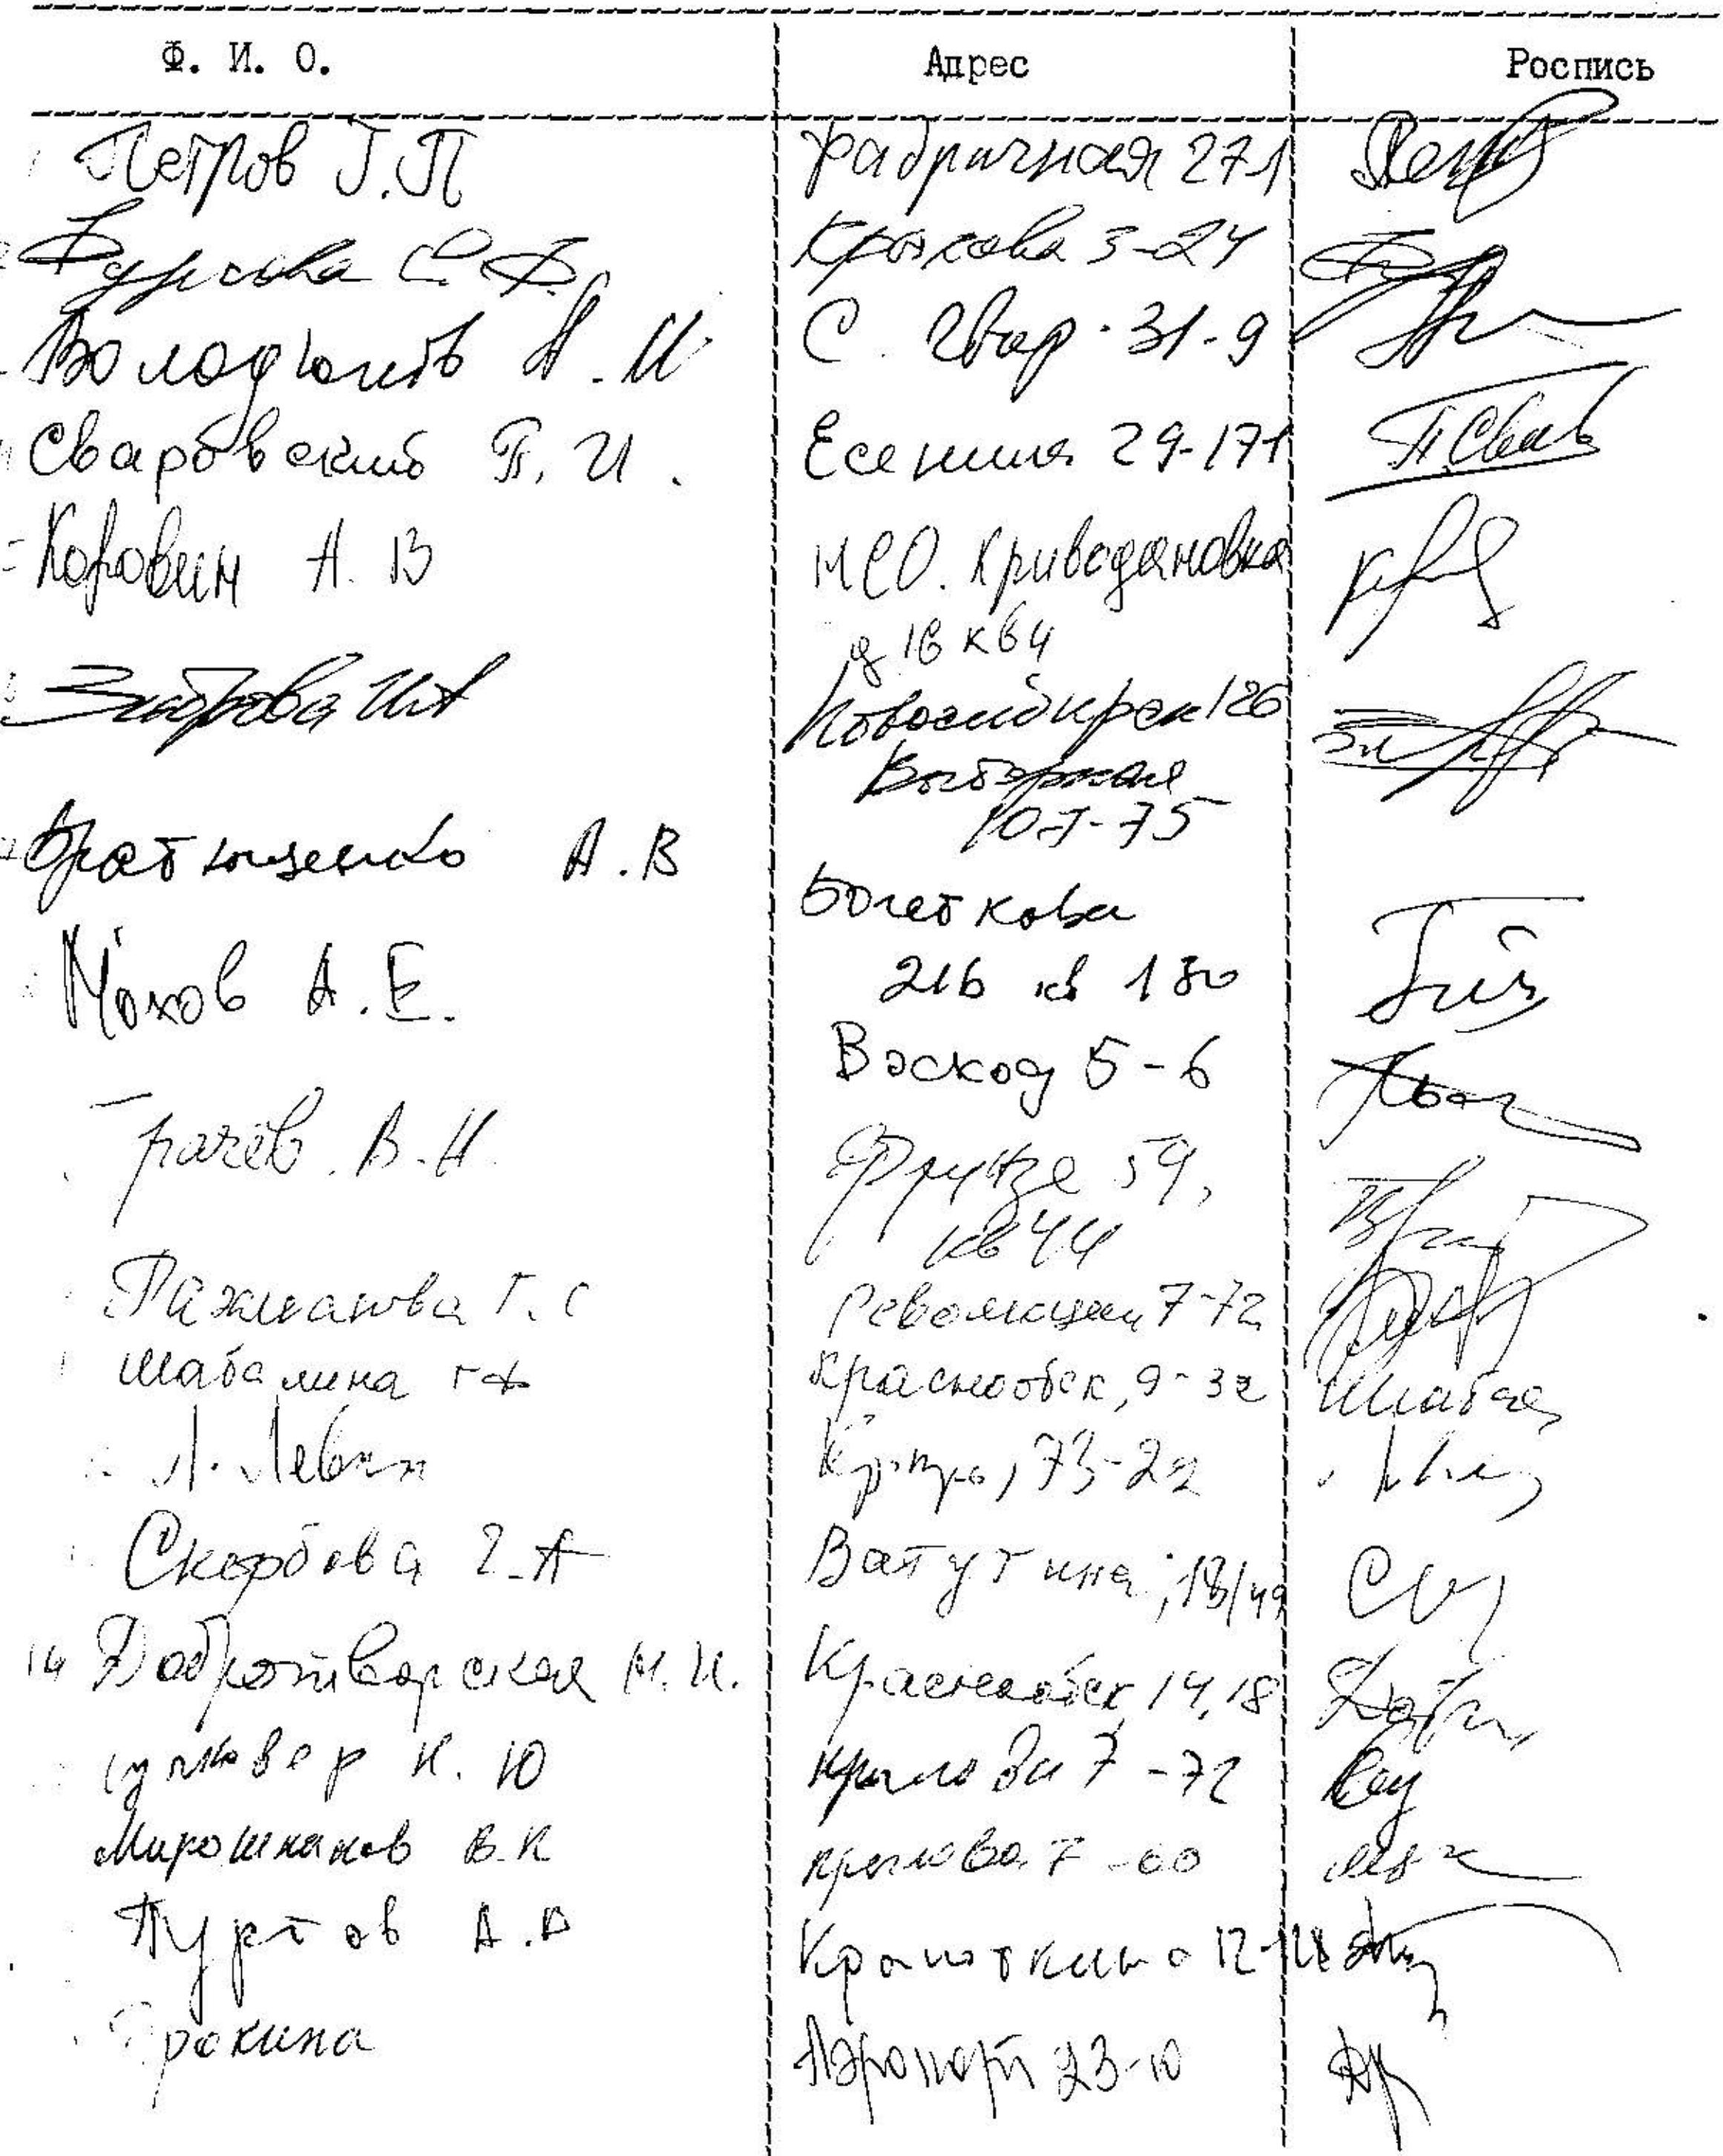 Ф. И. О. Адрес Роспись
Петров Г.П Фабричная 27-1
С.Ф. Крылова 3-24
Володюнов А.И. С. Гвар. 31-9
Сваровский П. И. Есенина 29-171
Коровин А. В НСО. Криводановка
д 16 кв 4
И.А Новосибирск 126
Выборная
107-75
Братющенко А.В
Богаткова
216 кв 130
Мохов А.Е.
Восход 5-6
Грачёв. В.Н.
Фрунзе 59,
кв 44
Т. С Революции 7-72
Шабалина Г Ф Краснообск, 9-32
Л. Левин 73-22
Скорбова Г.А Ватутина, 18/49
14 Добротворская Н.И. Краснообск, 14, 18
К. Ю Крылова 7-72
Мирошников В.К Крылова 7-60
Пуртов А.А Кропоткина
Ерохина Аэропорт 23-10